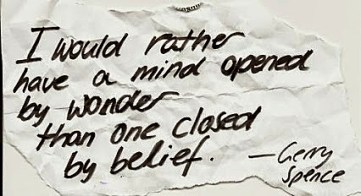 I would rather
have a mind opened
by wonder
than one closed
by belief.
—Gerry
Spence